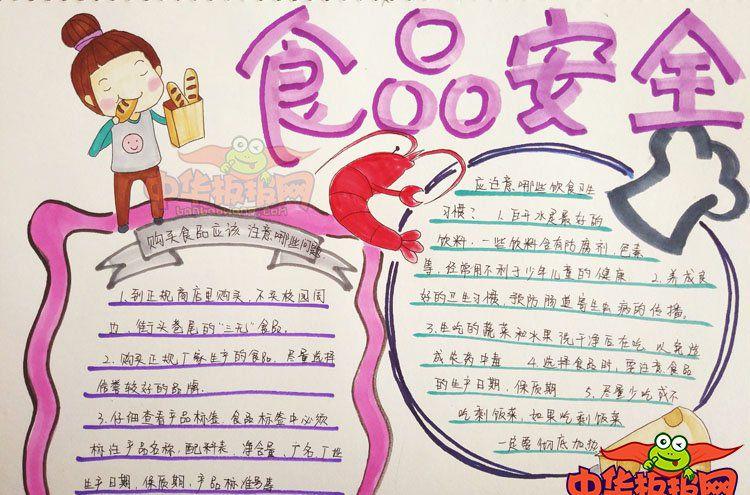 食品安全
中华板报网
购买食品应该注意哪些问题
1.到正规商店里购买，不买校园周
边、街头巷尾的“三无”食品。
2.购买正规厂家生产的食品，尽量选择
信誉较好的品牌。
3.仔细查看产品标签。食品标签中必须
标注产品名称、配料表、净含量、厂名、厂址
生产日期、保质期、产品标准号等
应注意哪些饮食卫生
习惯？ 1.白开水是最好的
饮料，一些饮料含有防腐剂、色素
等，经常用不利于少年儿童的健康 2.养成良
好的卫生习惯，预防肠道寄生虫病的传播。
3.生吃的蔬菜和水果洗干净后在吃，以免造
成农药中毒 4.选择食品时，要注意食品
的生产日期、保质期 5.尽量少吃或不
吃剩饭菜，如果吃剩饭菜
一定要彻底加热
中华板报网